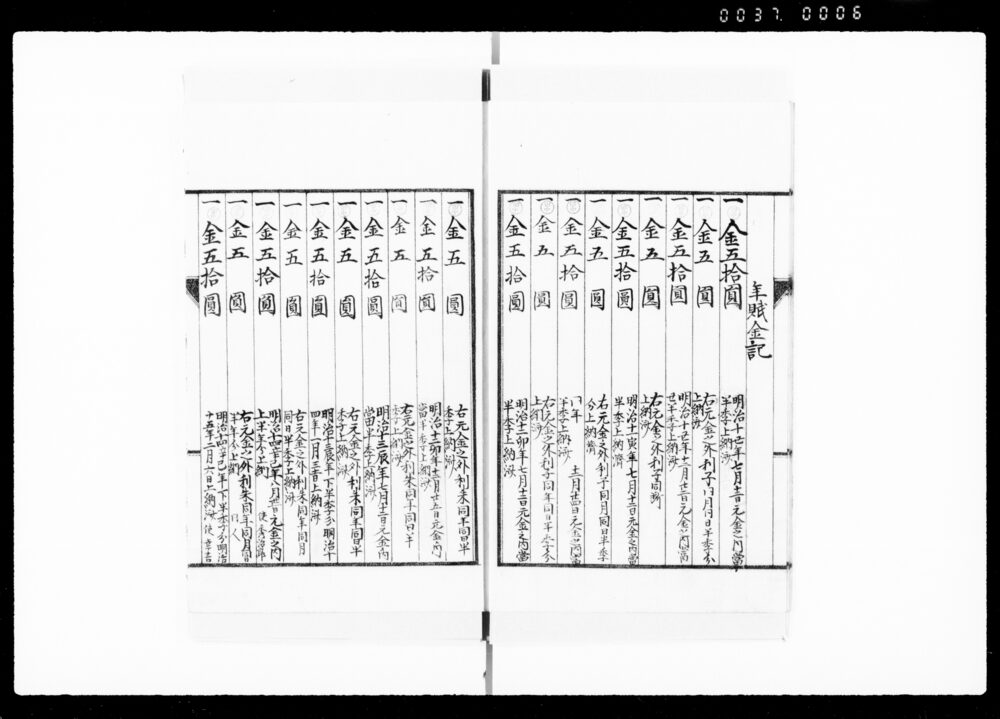 0037 0006
年賦金記
一金五拾圓
明治十丑年七月十二日元金之内當
半季上納済
一金五 圓
右元金之外利子同月同日半季分
上納済
一金五拾圓
明治十丑年十二月廿二日元金之内當
丑半季上納済
一金五 圓
右元金之外利子同断
上納済
一金五拾圓
明治十一寅年七月十二日元金之内當
半季上納済
一金五 圓
右元金之外利子同月同日半季
分上納済
一金五拾圓
同年 十二月廿四日元金之内當
半季上納済
一金五 圓
右元金之外利子同年同日半季分
上納済
一金五拾圓
明治十二卯年七月十二日元金之内當
半季上納済
一金五 圓
右元金之外利朱同年同日半
季上納済
一金五拾圓
明治十二卯年十二月廿五日元金之内
當半季上納済
一金五 圓
右元金之外利朱同年同日半
季上納済
一金五拾圓
明治十三辰年七月十二日元金内
當半季上納済
一金五 圓
右元金之外利朱同年同日半
季上納済
一金五拾圓
明治十三辰年下半季分明治十
四年一月三日上納済
一金五 圓
右元金之外利朱同年同月
同日半季上納済
一金五拾圓
明治十四巳年八月 元金之内
上半年分上納
一金五 圓
右元金之外利朱同年同月同日
半年分上納
一金五拾圓
明治十四辛巳年下半季分明治
十五年一月六日上納済